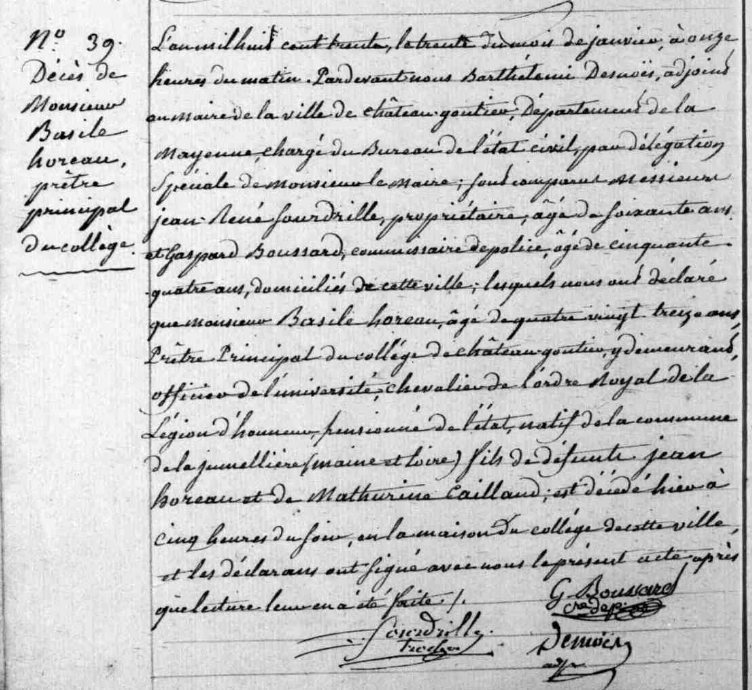 N.º 39.
Décès de
Monsieur
Basile
horeau,
prêtre
principal
du collège.
L'an mil huit cent trente, le trente du mois de janvier, à onze
heures du matin. Pardevant nous Barthélemi Desnoës, adjoint
au maire de la ville de château-gontier, Département de la
Mayenne, chargé du Bureau de l'état civil, par délégation
Spéciale de Monsieur le Maire; sont comparus Messieurs
jean-René Sourdrille, propriétaire, âgé de soixante ans
et Gaspard Boussard, commissaire de police, âgé de cinquante-
quatre ans, domiciliés de cette ville; lesquels nous ont déclaré
que monsieur Basile horeau, âgé de quatre vingt treize ans,
Prêtre Principal du collége de château-gontier, y demeurant,
officier de l'université, chevalier de l'ordre Royal de la
Légion d'honneur, pensionné de l'état, natif de la commune
de la jumellière (maine et Loire) fils de défunts jean
horeau et de Mathurine Cailland; est décédé hier à
cinq heures du soir, en la maison du collége de cette ville,
et les déclarans ont signé avec nous le présent acte après
que lecture leur en a été faite./.
G Boussard
Sourdrille
Desnoës
adj